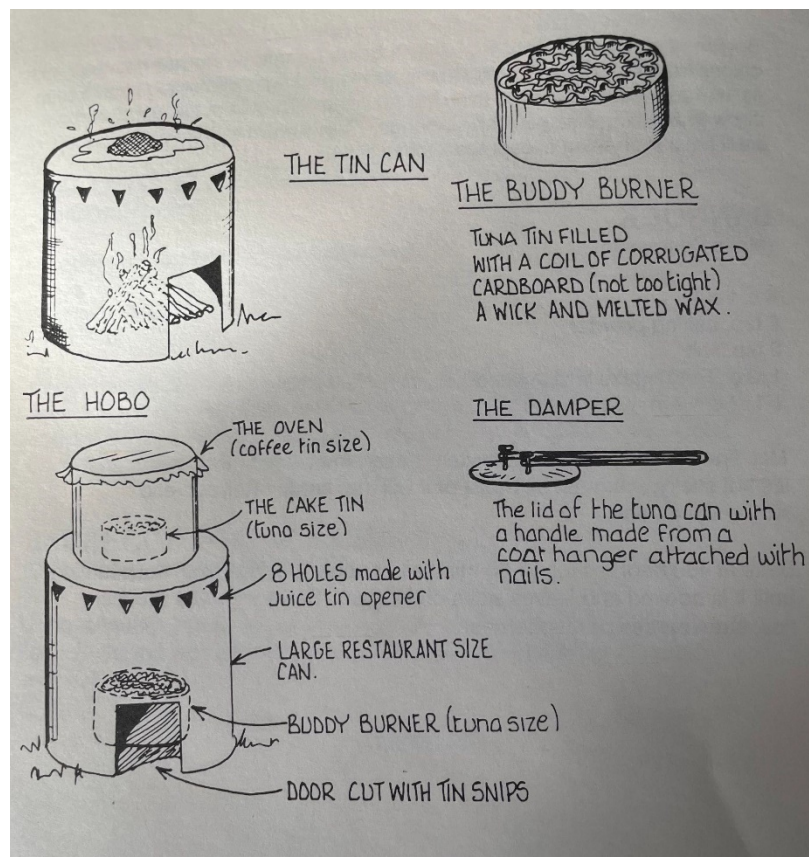 THE TIN CAN
THE BUDDY BURNER
TUNA TIN FILLED
WITH A COIL OF CORRUGATED
CARDBOARD (not too tight)
A WICK AND MELTED WAX.
THE HOBO
THE OVEN
(coffee tin size)
THE CAKE TIN
(tuna size)
8 HOLES made with
Juice tin opener
LARGE RESTAURANT SIZE
CAN.
BUDDY BURNER (tuna size)
DOOR CUT WITH TIN SNIPS
THE DAMPER
The lid of the tuna can with
a handle made from a
coat hanger attached with
nails.